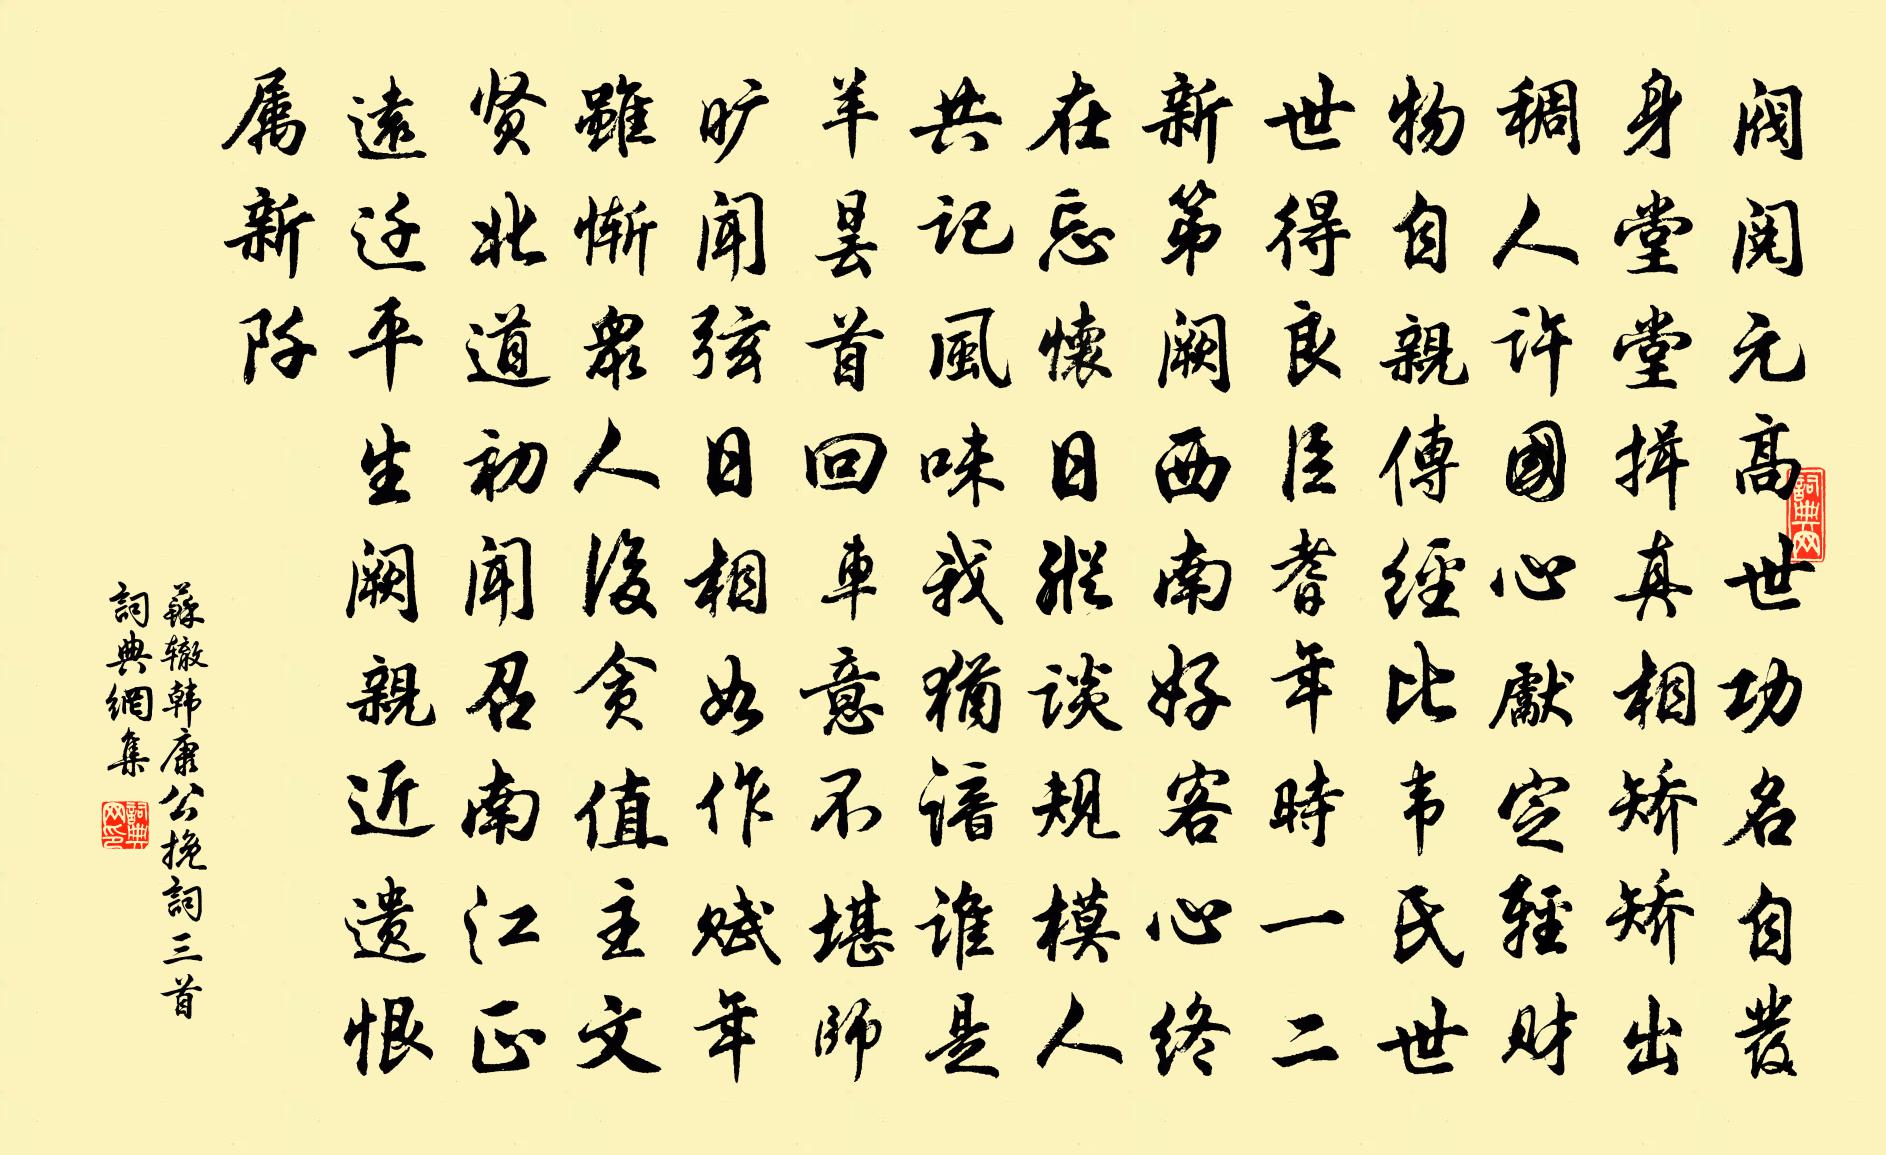 阀阅元高世功名自發
身堂堂揖真相矫矫出
稠人許國心獻定輕财
物自親傳經比韦氏世
世得良臣耆年時一二
新第阙西南好客心终
在忘懷日縱谈规模人
共记風味我猶谙谁是
羊昙首回車意不堪師
旷闻弦日相如作赋年
雖惭衆人後贪值主文
贤北道初闻召南江正
遠迁平生阙親近遗恨
属新阡
蘇辙韩康公挽詞三首
詞典網集
詞典网
詞典网印